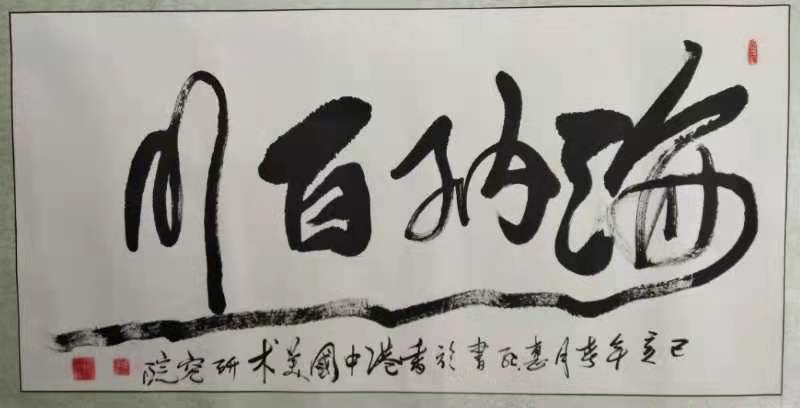 海纳百川
己亥年春月惠民书於香港中國美术研究院